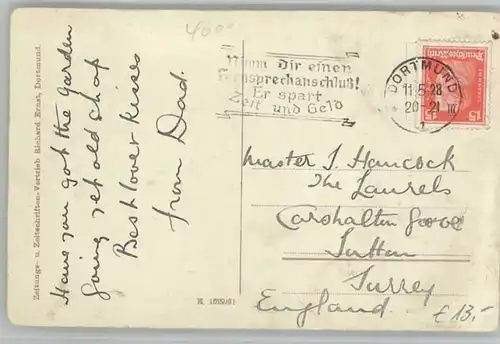 4000
Nimm Dir einen
Fernsprechanschluß!
Er spart
Zeit und Geld
DORTMUND
11.5.28
20-21
1
Deutsches Reich
15
15
Have you got the garden
going yet old chap
Best love & kisses
from Dad.
Master J. Hancock
The Laurels
Carshalton Grove
Sutton
Surrey
England.
€ 13,-
Zeitungs- u. Zeitschriften-Vertrieb Richard Ernst, Dortmund.